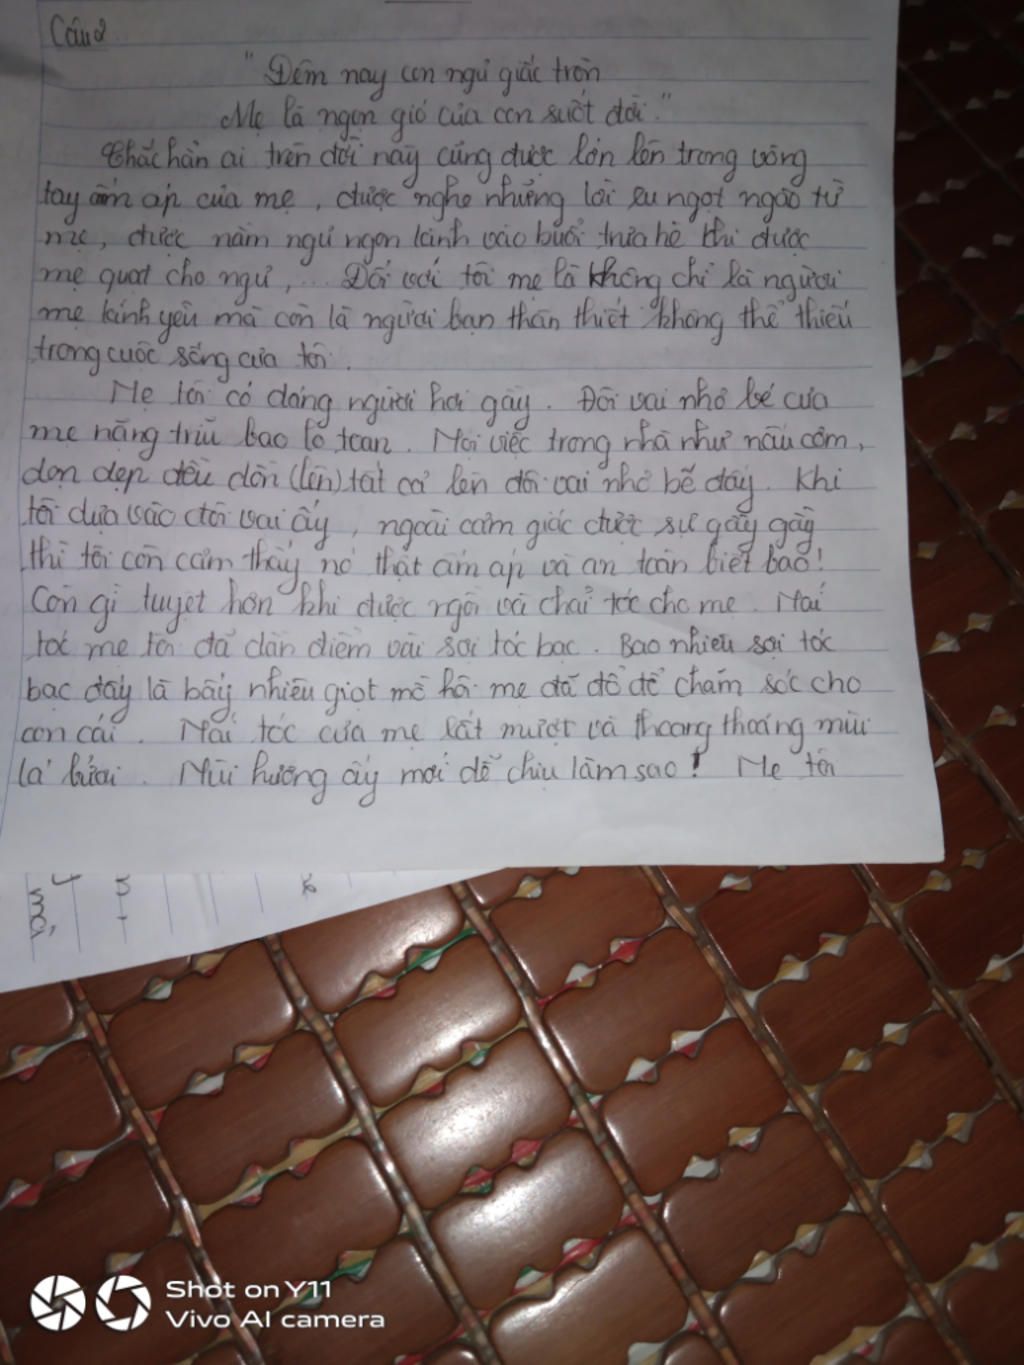 Câu 2
"Đêm nay con ngủ giấc tròn
Mẹ là ngọn gió của con suốt đời."
Chắc hẳn ai trên đời này cũng được lớn lên trong vòng
tay ấm áp của mẹ, được nghe những lời ru ngọt ngào từ
mẹ, được nằm ngủ ngon lành vào buổi trưa hè khi được
mẹ quạt cho ngủ,... Đối với tôi mẹ là không chỉ là người
mẹ kính yêu mà còn là người bạn thân thiết không thể thiếu
trong cuộc sống của tôi.
Mẹ tôi có dáng người hơi gầy. Đôi vai nhỏ bé của
mẹ nặng trĩu bao lo toan. Mọi việc trong nhà như nấu cơm,
dọn dẹp đều dồn (lên) tất cả lên đôi vai nhỏ bé đấy. Khi
tôi dựa vào đôi vai ấy, ngoài cảm giác được sự gầy gầy
thì tôi còn cảm thấy nó thật ấm áp và an toàn biết bao!
Còn gì tuyệt hơn khi được ngồi và chải tóc cho mẹ. Mái
tóc mẹ tôi đã dần điểm vài sợi tóc bạc. Bao nhiêu sợi tóc
bạc đấy là bấy nhiêu giọt mồ hôi mẹ đã đổ để chăm sóc cho
con cái. Mái tóc của mẹ rất mượt và thoang thoảng mùi
lá bưởi. Mùi hương ấy mới dễ chịu làm sao! Mẹ tôi
Shot on Y11
Vivo AI camera